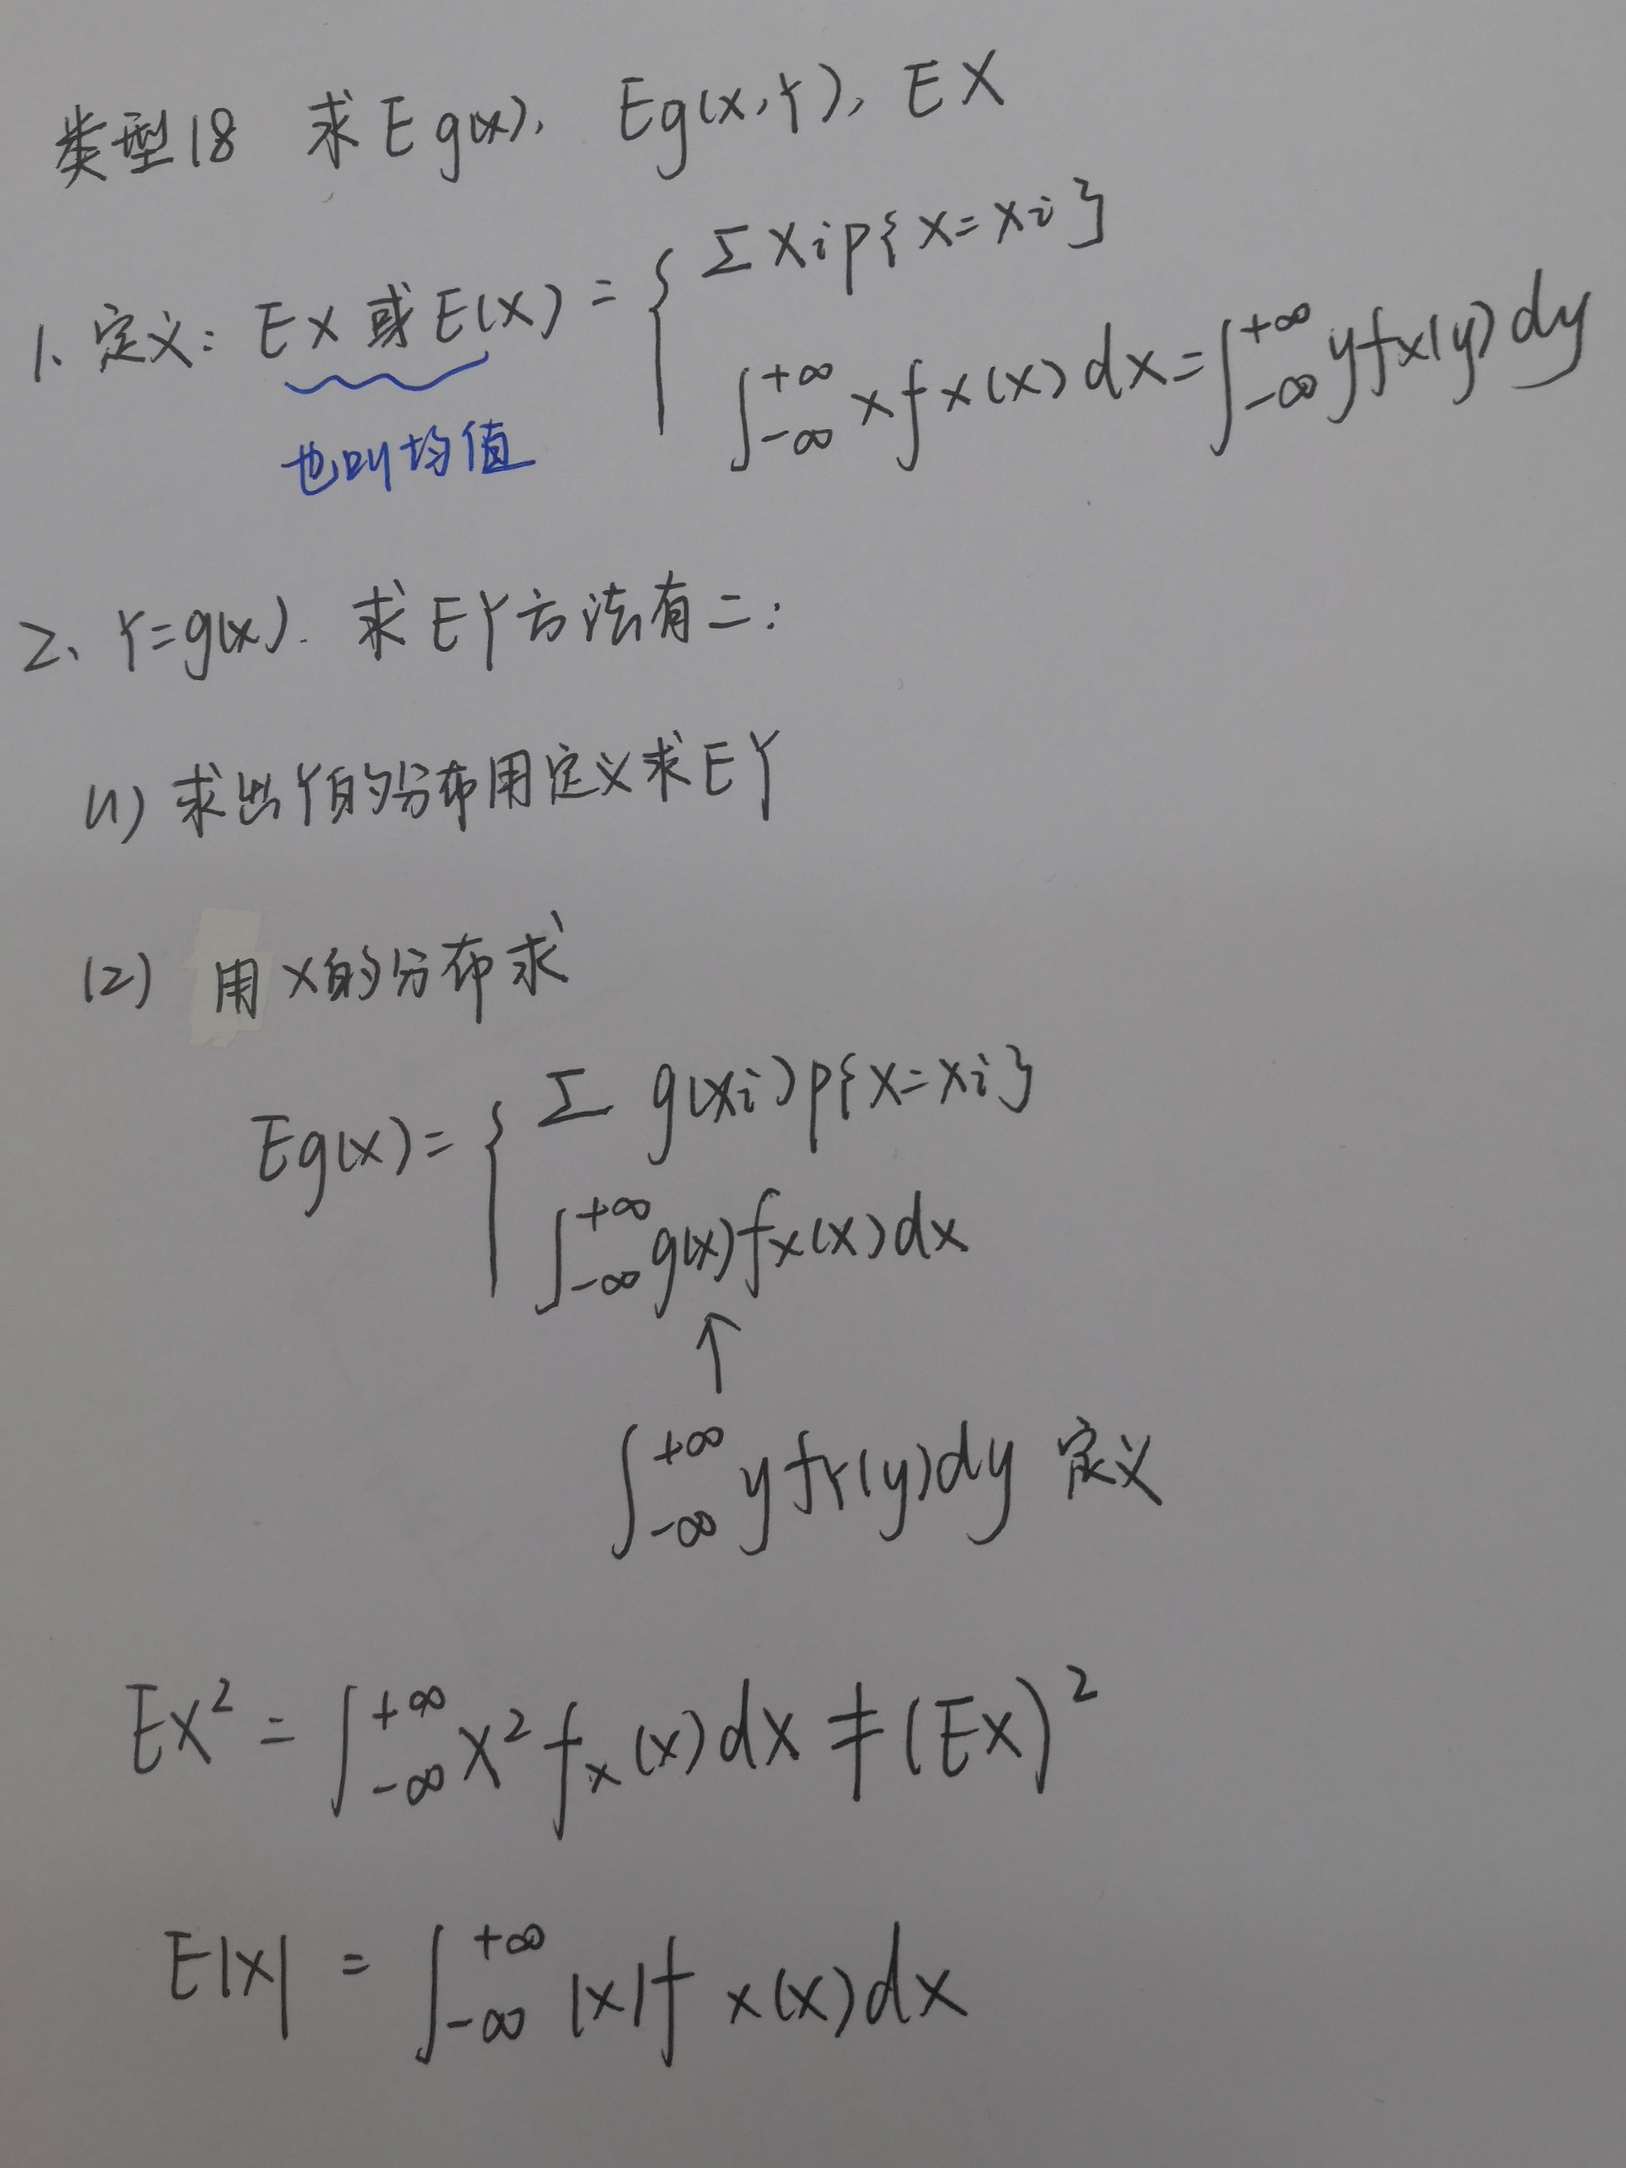 类型18 求Eg(x), Eg(x,Y), EX
1、定义: EX 或 E(X) = { Σ xi p{X=xi}
∫_{-∞}^{+∞} x f_X(x) dx = ∫_{-∞}^{+∞} y f_X(y) dy
也叫均值
2、Y=g(x). 求EY方法有二:
(1) 求出Y的分布用定义求EY
(2) 用X的分布求
Eg(x) = { Σ g(xi) p{X=xi}
∫_{-∞}^{+∞} g(x) f_X(x) dx
↑
∫_{-∞}^{+∞} y f_Y(y) dy 定义
EX² = ∫_{-∞}^{+∞} x² f_X(x) dx ≠ (EX)²
E|X| = ∫_{-∞}^{+∞} |x| f_X(x) dx